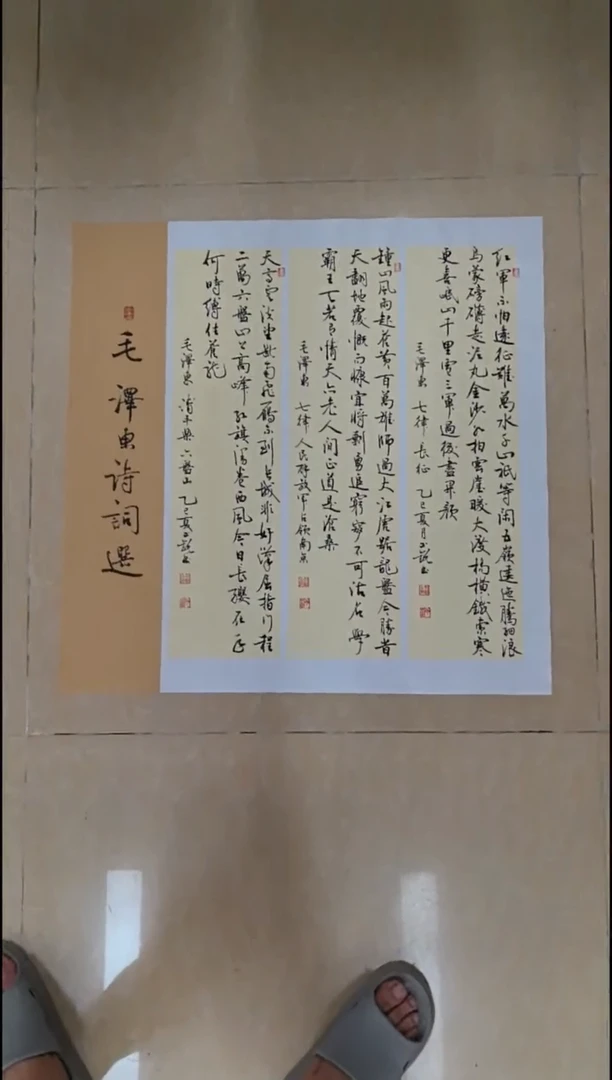 紅軍不怕遠征難萬水千山祇等閑五嶺逶迤騰細浪
烏蒙磅礴走泥丸金沙水拍雲崖暖大渡橋橫鐵索寒
更喜岷山千里雪三軍過後盡開顏
毛澤東 七律 長征 乙巳夏月 書
鐘山風雨起蒼黃百萬雄師過大江虎踞龍盤今勝昔
天翻地覆慨而慷宜將剩勇追窮寇不可沽名學
霸王天若有情天亦老人間正道是滄桑
毛澤東 七律 人民解放軍占領南京
天高雲淡望斷南飛雁不到長城非好漢屈指行程
二萬六盤山上高峰紅旗漫卷西風今日長纓在手
何時縛住蒼龍
毛澤東 清平樂 六盤山 乙巳夏 書
毛澤東詩詞選